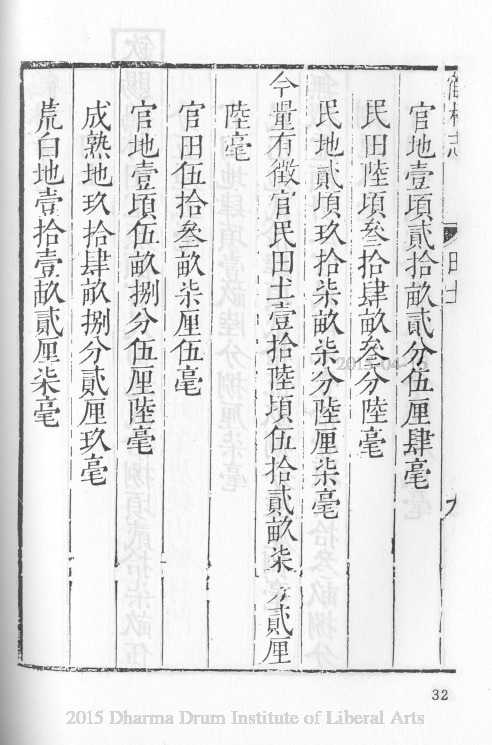 官地壹頃貳拾畝貳分伍厘肆毫
民田陸頃叁拾肆畝叁分陸毫
民地貳頃玖拾柒畝柒分陸厘柒毫
今量有徵官民田土壹拾陸頃伍拾貳畝柒分貳厘
陸毫
官田伍拾叁畝柒厘伍毫
官地壹頃伍畝捌分伍厘陸毫
成熟地玖拾肆畝捌分貳厘玖毫
荒白地壹拾壹畝貳厘柒毫
田土
九
32
2015 Dharma Drum Institute of Liberal Arts